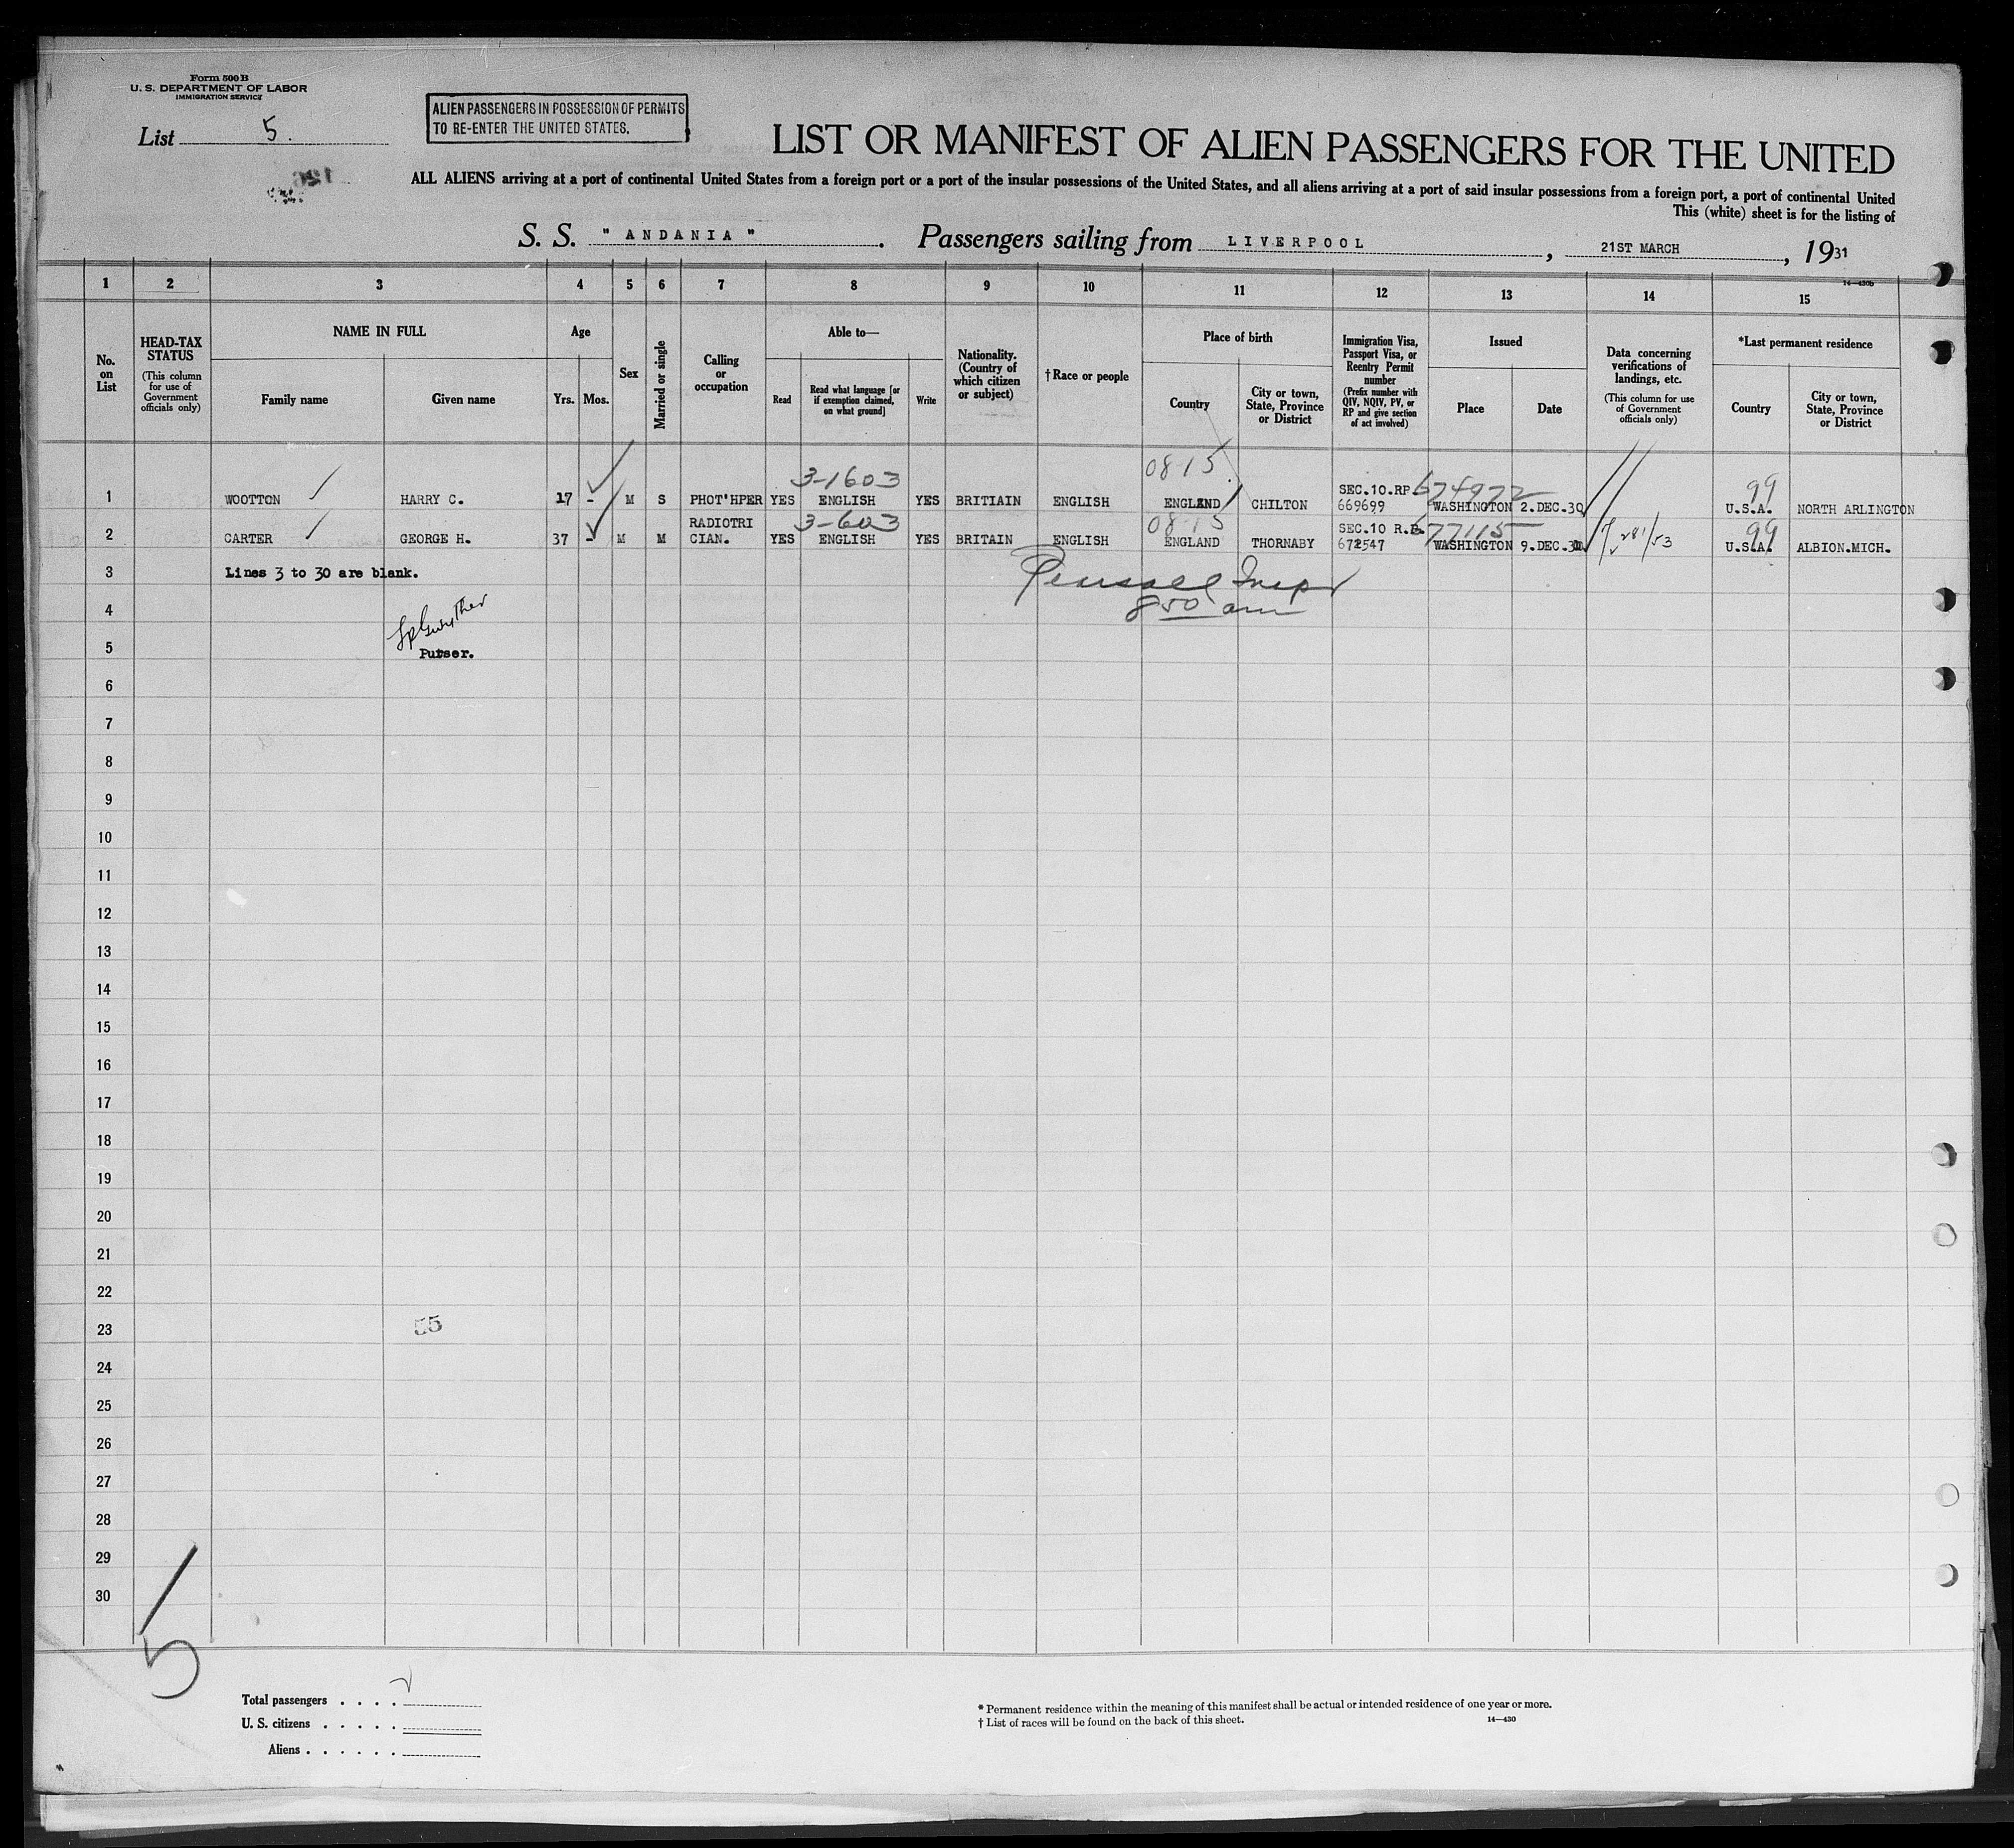 Form 500 B
U. S. DEPARTMENT OF LABOR
IMMIGRATION SERVICE
List 5.
ALIEN PASSENGERS IN POSSESSION OF PERMITS
TO RE-ENTER THE UNITED STATES.
LIST OR MANIFEST OF ALIEN PASSENGERS FOR THE UNITED
ALL ALIENS arriving at a port of continental United States from a foreign port or a port of the insular possessions of the United States, and all aliens arriving at a port of said insular possessions from a foreign port, a port of continental United
This (white) sheet is for the listing of
S. S. " ANDANIA " . Passengers sailing from LIVERPOOL , 21ST MARCH , 1931
14—430b
1 2 3 4 5 6 7 8 9 10 11 12 13 14 15
No. on List
HEAD-TAX STATUS (This column for use of Government officials only)
NAME IN FULL
Family name
Given name
Age
Yrs. Mos.
Sex
Married or single
Calling or occupation
Able to—
Read
Read what language [or if exemption claimed, on what ground]
Write
Nationality. (Country of which citizen or subject)
† Race or people
Place of birth
Country
City or town, State, Province or District
Immigration Visa, Passport Visa, or Reentry Permit number (Prefix number with QIV, NQIV, PV, or RP and give section of act involved)
Issued
Place
Date
Data concerning verifications of landings, etc. (This column for use of Government officials only)
*Last permanent residence
Country
City or town, State, Province or District
3-1603 0815 SEC.10.RP. 674972 99
1 WOOTTON HARRY C. 17 - M S PHOT'HPER YES ENGLISH YES BRITIAIN ENGLISH ENGLAND CHILTON 669699 WASHINGTON 2.DEC.30 U.S.A. NORTH ARLINGTON
RADIOTRI 3-603 0815 SEC.10 R.P. 677115 99
2 CARTER GEORGE H. 37 - M M CIAN. YES ENGLISH YES BRITAIN ENGLISH ENGLAND THORNABY 672547 WASHINGTON 9.DEC.30 281/53 U.S.A. ALBION.MICH.
3 Lines 3 to 30 are blank.
Insp
4 850 am
5 Purser.
6
7
8
9
10
11
12
13
14
15
16
17
18
19
20
21
22
23 55
24
25
26
27
28
29
30
5
Total passengers . . . .
U. S. citizens . . . . .
Aliens . . . . . .
* Permanent residence within the meaning of this manifest shall be actual or intended residence of one year or more.
† List of races will be found on the back of this sheet. 14—430